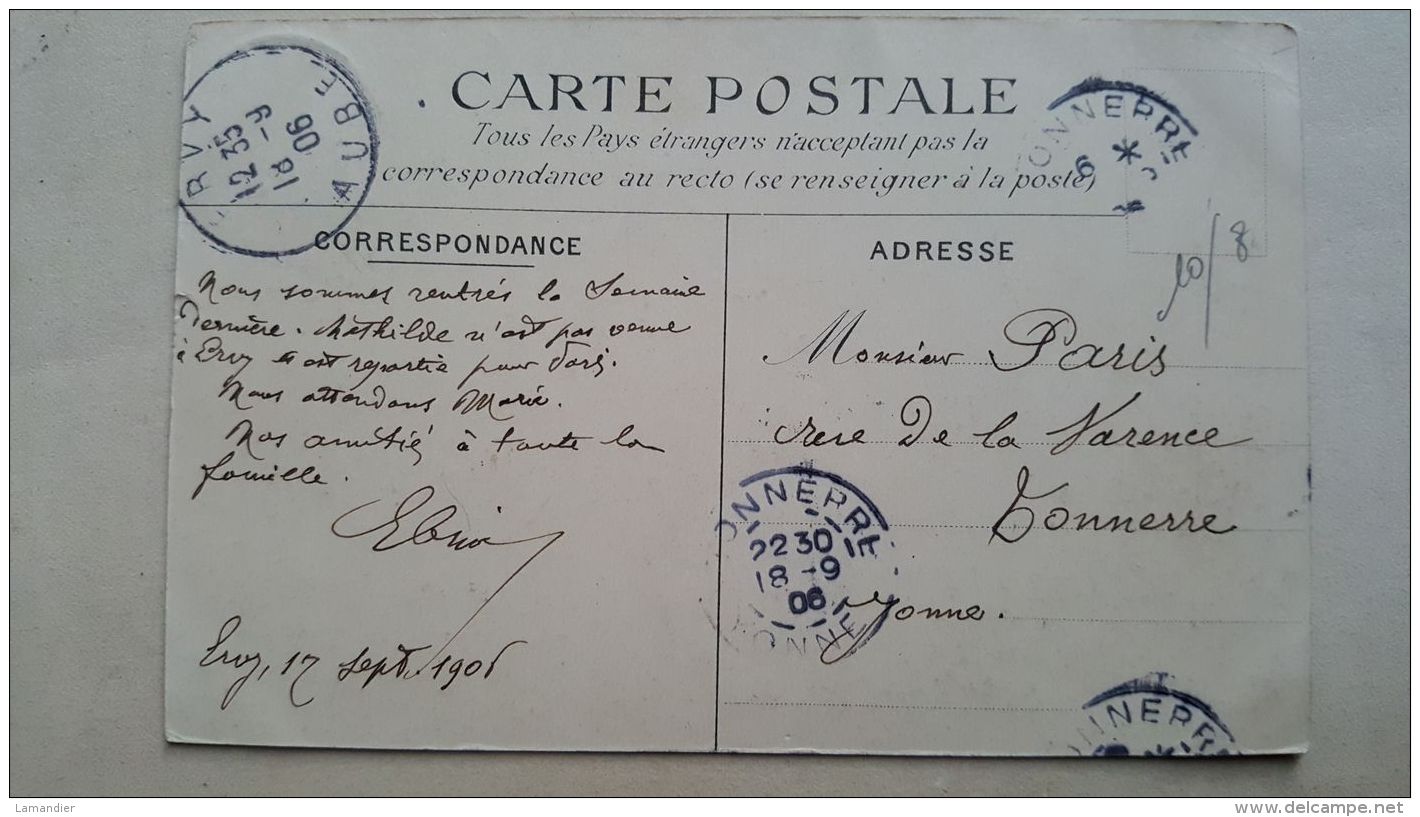 CARTE POSTALE
Tous les Pays étrangers n'acceptant pas la
correspondance au recto (se renseigner à la poste)
RVY
12 35
18 -9
06
AUBE
ONNERRE
6 *
CORRESPONDANCE
Nous sommes rentrés la Semaine
Dernière. Mathilde n'est pas venue
à Ervy et est repartie pour Paris.
Nous attendons Marie.
Nos amitiés à toute la
famille.
Ervy, 17 Sept. 1906
ADRESSE
10/8
Monsieur Paris
rue De la Varence
Tonnerre
Yonne.
ONNERRE
22 30
18 -9
06
YONNE
ONNERR
Lamandier
www.delcampe.net